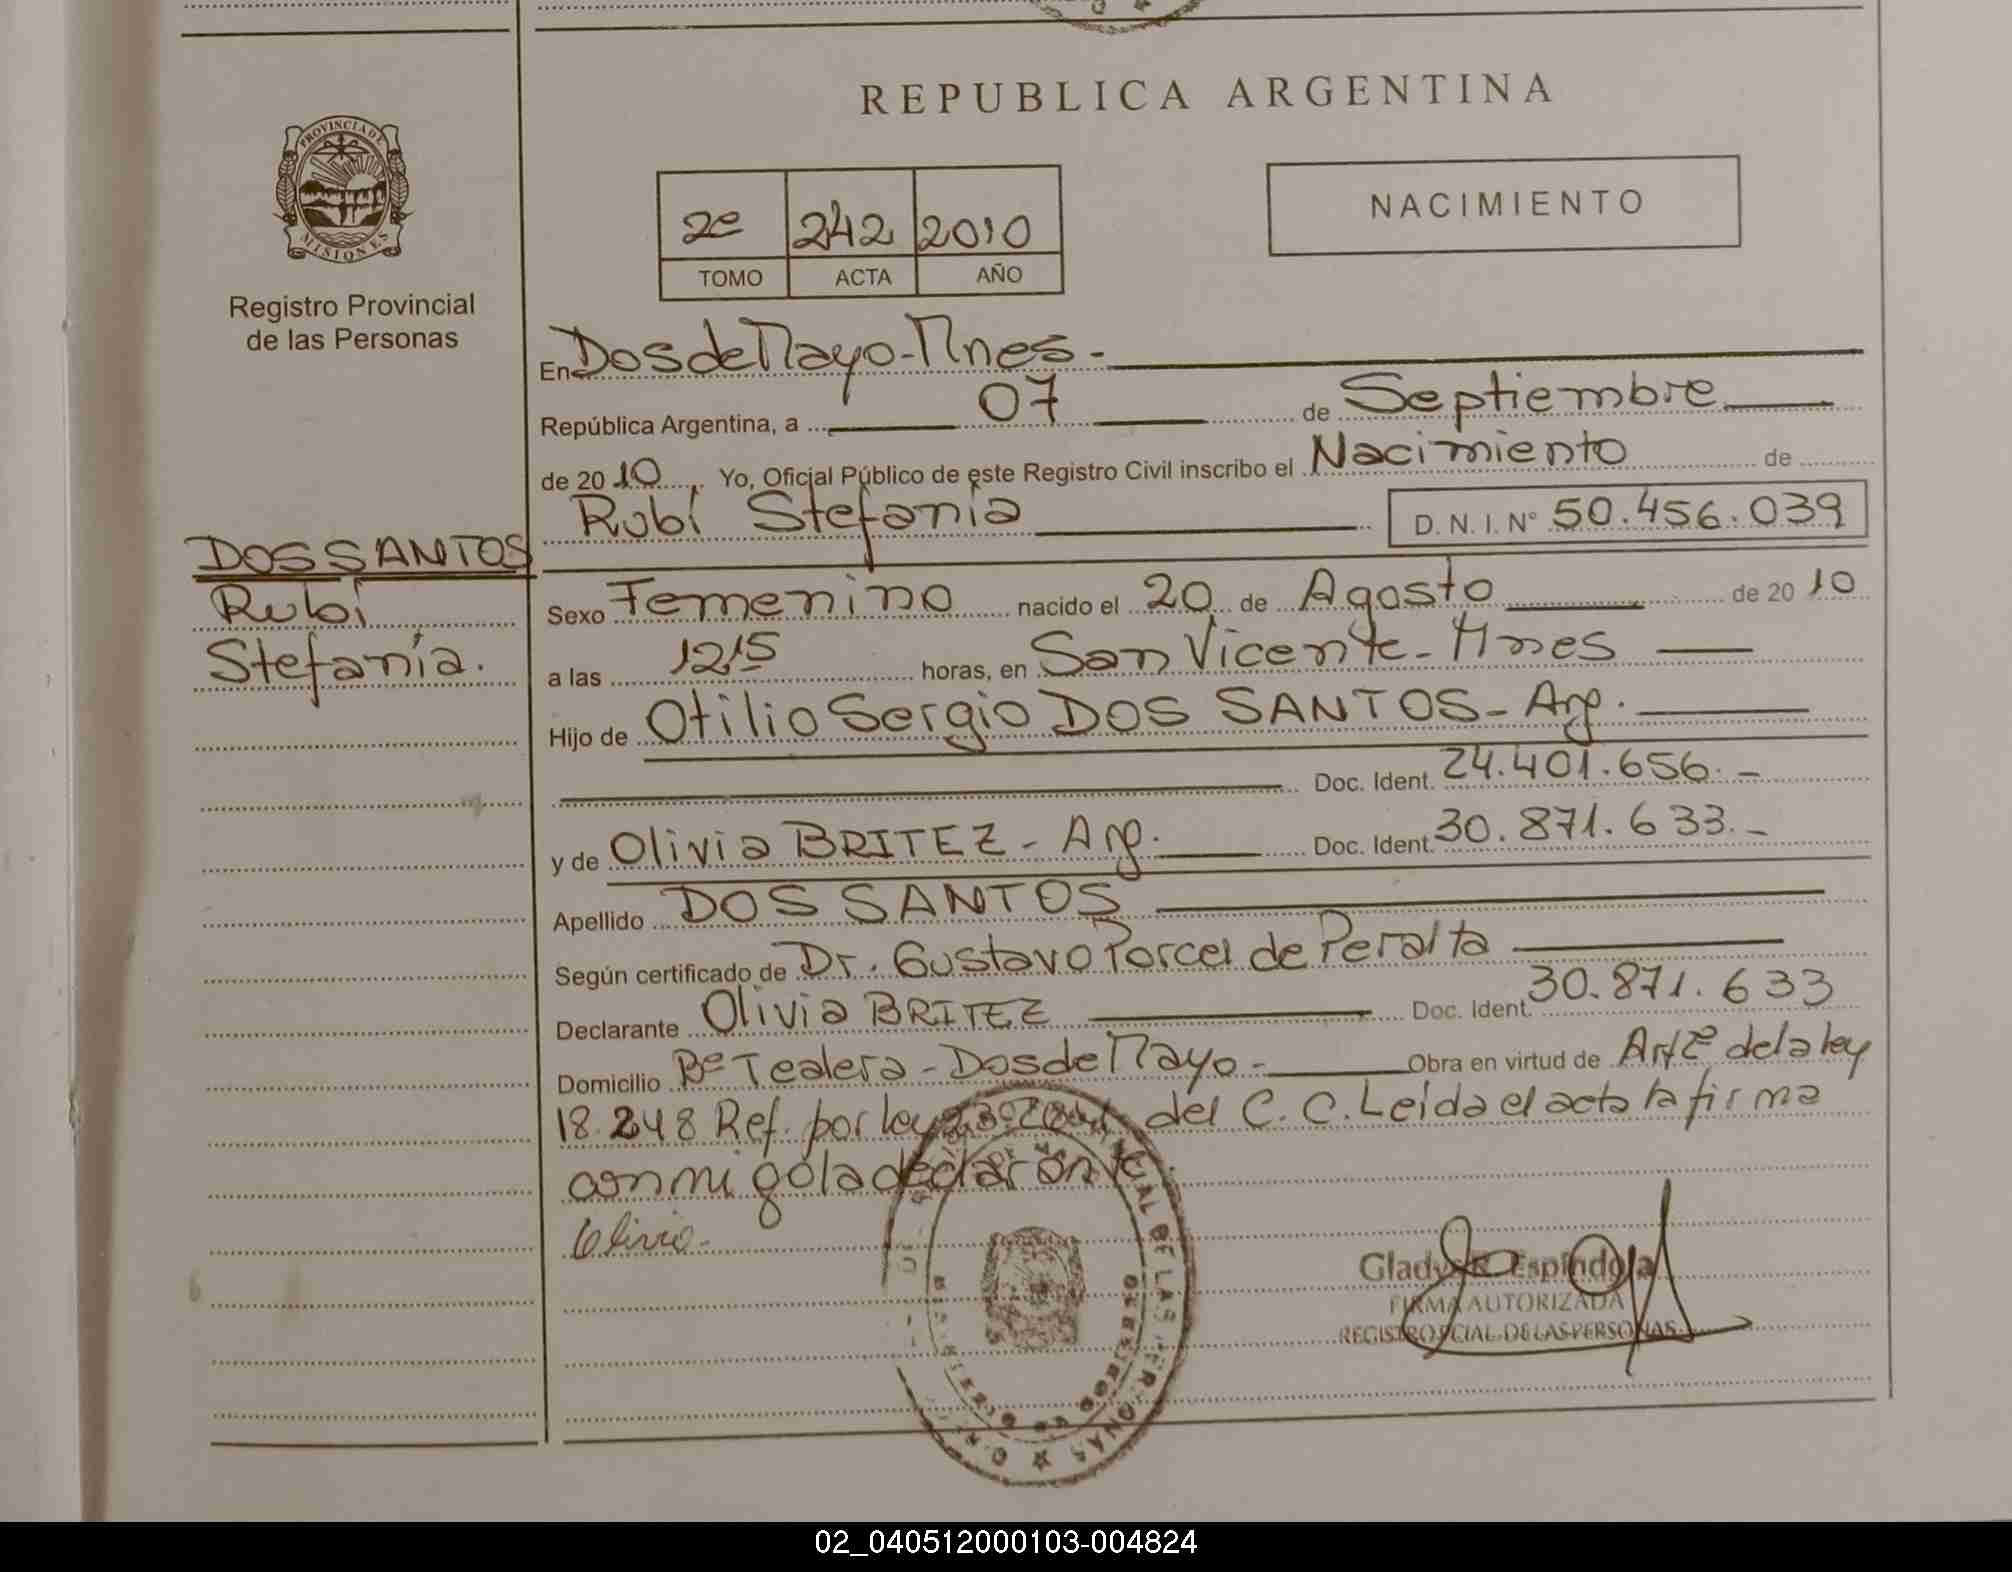 REPUBLICA ARGENTINA
PROVINCIA DE MISIONES
Registro Provincial
de las Personas
2º 242 2010
TOMO ACTA AÑO
NACIMIENTO
En Dos de Mayo - Mnes -
República Argentina, a 07 de Septiembre
de 2010 Yo, Oficial Público de este Registro Civil inscribo el Nacimiento de
Rubí Stefanía D. N. I. Nº 50.456.039
DOS SANTOS
Rubí
Stefanía.
Sexo Femenino nacido el 20 de Agosto de 2010
a las 1215 horas, en San Vicente - Mnes
Hijo de Otilio Sergio DOS SANTOS - Arg.
Doc. Ident. 24.401.656. -
y de Olivia BRITEZ - Arg. Doc. Ident. 30.871.633. -
Apellido DOS SANTOS
Según certificado de Dr. Gustavo Porcel de Peralta
Declarante Olivia BRITEZ Doc. Ident. 30.871.633
Domicilio Bº Tealera - Dos de Mayo - Obra en virtud de Art 2º de la ley
18.248 Ref. por ley del C. C. Leída el acta la firma
conmigo la declarante.
Olivia -
Gladys R. Espíndola
FIRMA AUTORIZADA
REGISTRO PCIAL. DE LAS PERSONAS
02_040512000103-004824